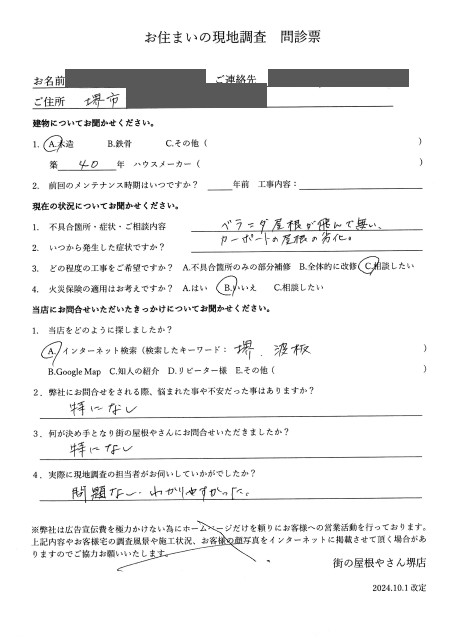 お住まいの現地調査 問診票
お名前 ご連絡先
ご住所 堺市
建物についてお聞かせください。
1. A.木造 B.鉄骨 C.その他（ ）
築 40 年 ハウスメーカー（ ）
2. 前回のメンテナンス時期はいつですか？ 年前 工事内容：
現在の状況についてお聞かせください。
1. 不具合箇所・症状・ご相談内容 ベランダ屋根が飛んで無い、
2. いつから発生した症状ですか？ カーポートの屋根の劣化。
3. どの程度の工事をご希望ですか？ A.不具合箇所のみの部分補修 B.全体的に改修 C.相談したい
4. 火災保険の適用はお考えですか？ A.はい B.いいえ C.相談したい
当店にお問合せいただいたきっかけについてお聞かせください。
1. 当店をどのように探しましたか？
A.インターネット検索（検索したキーワード： 堺、波板 ）
B.Google Map C.知人の紹介 D.リピーター様 E.その他（ ）
2．弊社にお問合せをされる際、悩まれた事や不安だった事はありますか？
特になし
3．何が決め手となり街の屋根やさんにお問合せいただきましたか？
特になし
4．実際に現地調査の担当者がお伺いしていかがでしたか？
問題ない。わかりやすかった。
※弊社は広告宣伝費を極力かけない為にホームページだけを頼りにお客様への営業活動を行っております。
上記内容やお客様宅の調査風景や施工状況、お客様の顔写真をインターネットに掲載させて頂く場合があ
りますのでご協力お願いいたします。
街の屋根やさん堺店
2024.10.1 改定